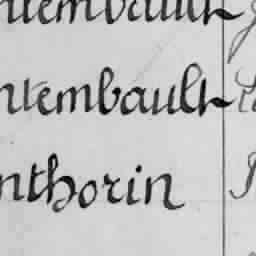 ntembault
ntembault
nthorin